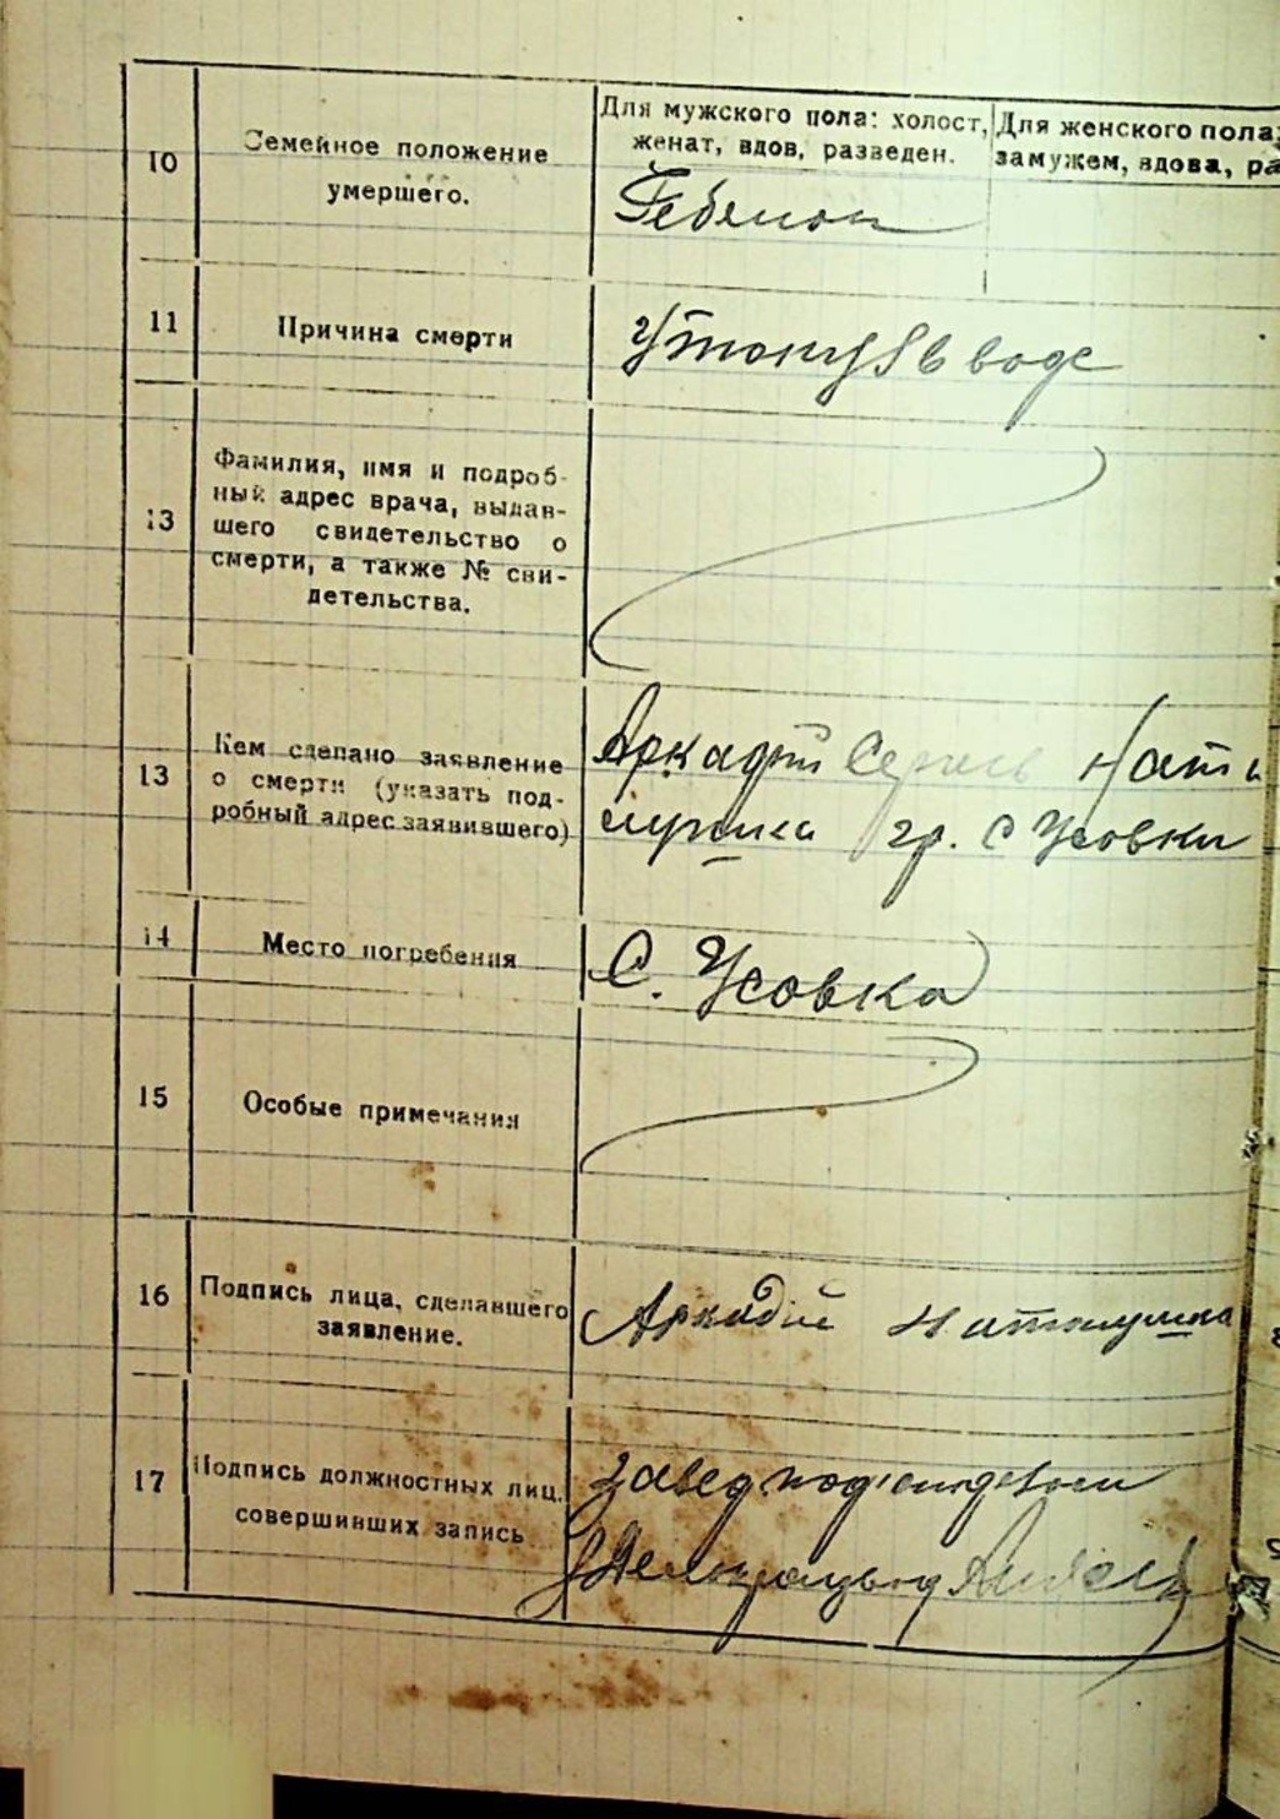 10
Семейное положение
умершего.
Для мужского пола: холост,
женат, вдов, разведен.
Для женского пола:
замужем, вдова, ра
Ребенок
11
Причина смерти
Утонул в воде
13
Фамилия, имя и подроб-
ный адрес врача, выдав-
шего свидетельство о
смерти, а также № сви-
детельства.
13
Кем сделано заявление
о смерти (указать под-
робный адрес заявившего)
Аркадий
гр. С Усовки
14
Место погребения
С. Усовка
15
Особые примечания
16
Подпись лица, сделавшего
заявление.
Аркадій
17
Подпись должностных лиц,
совершивших запись